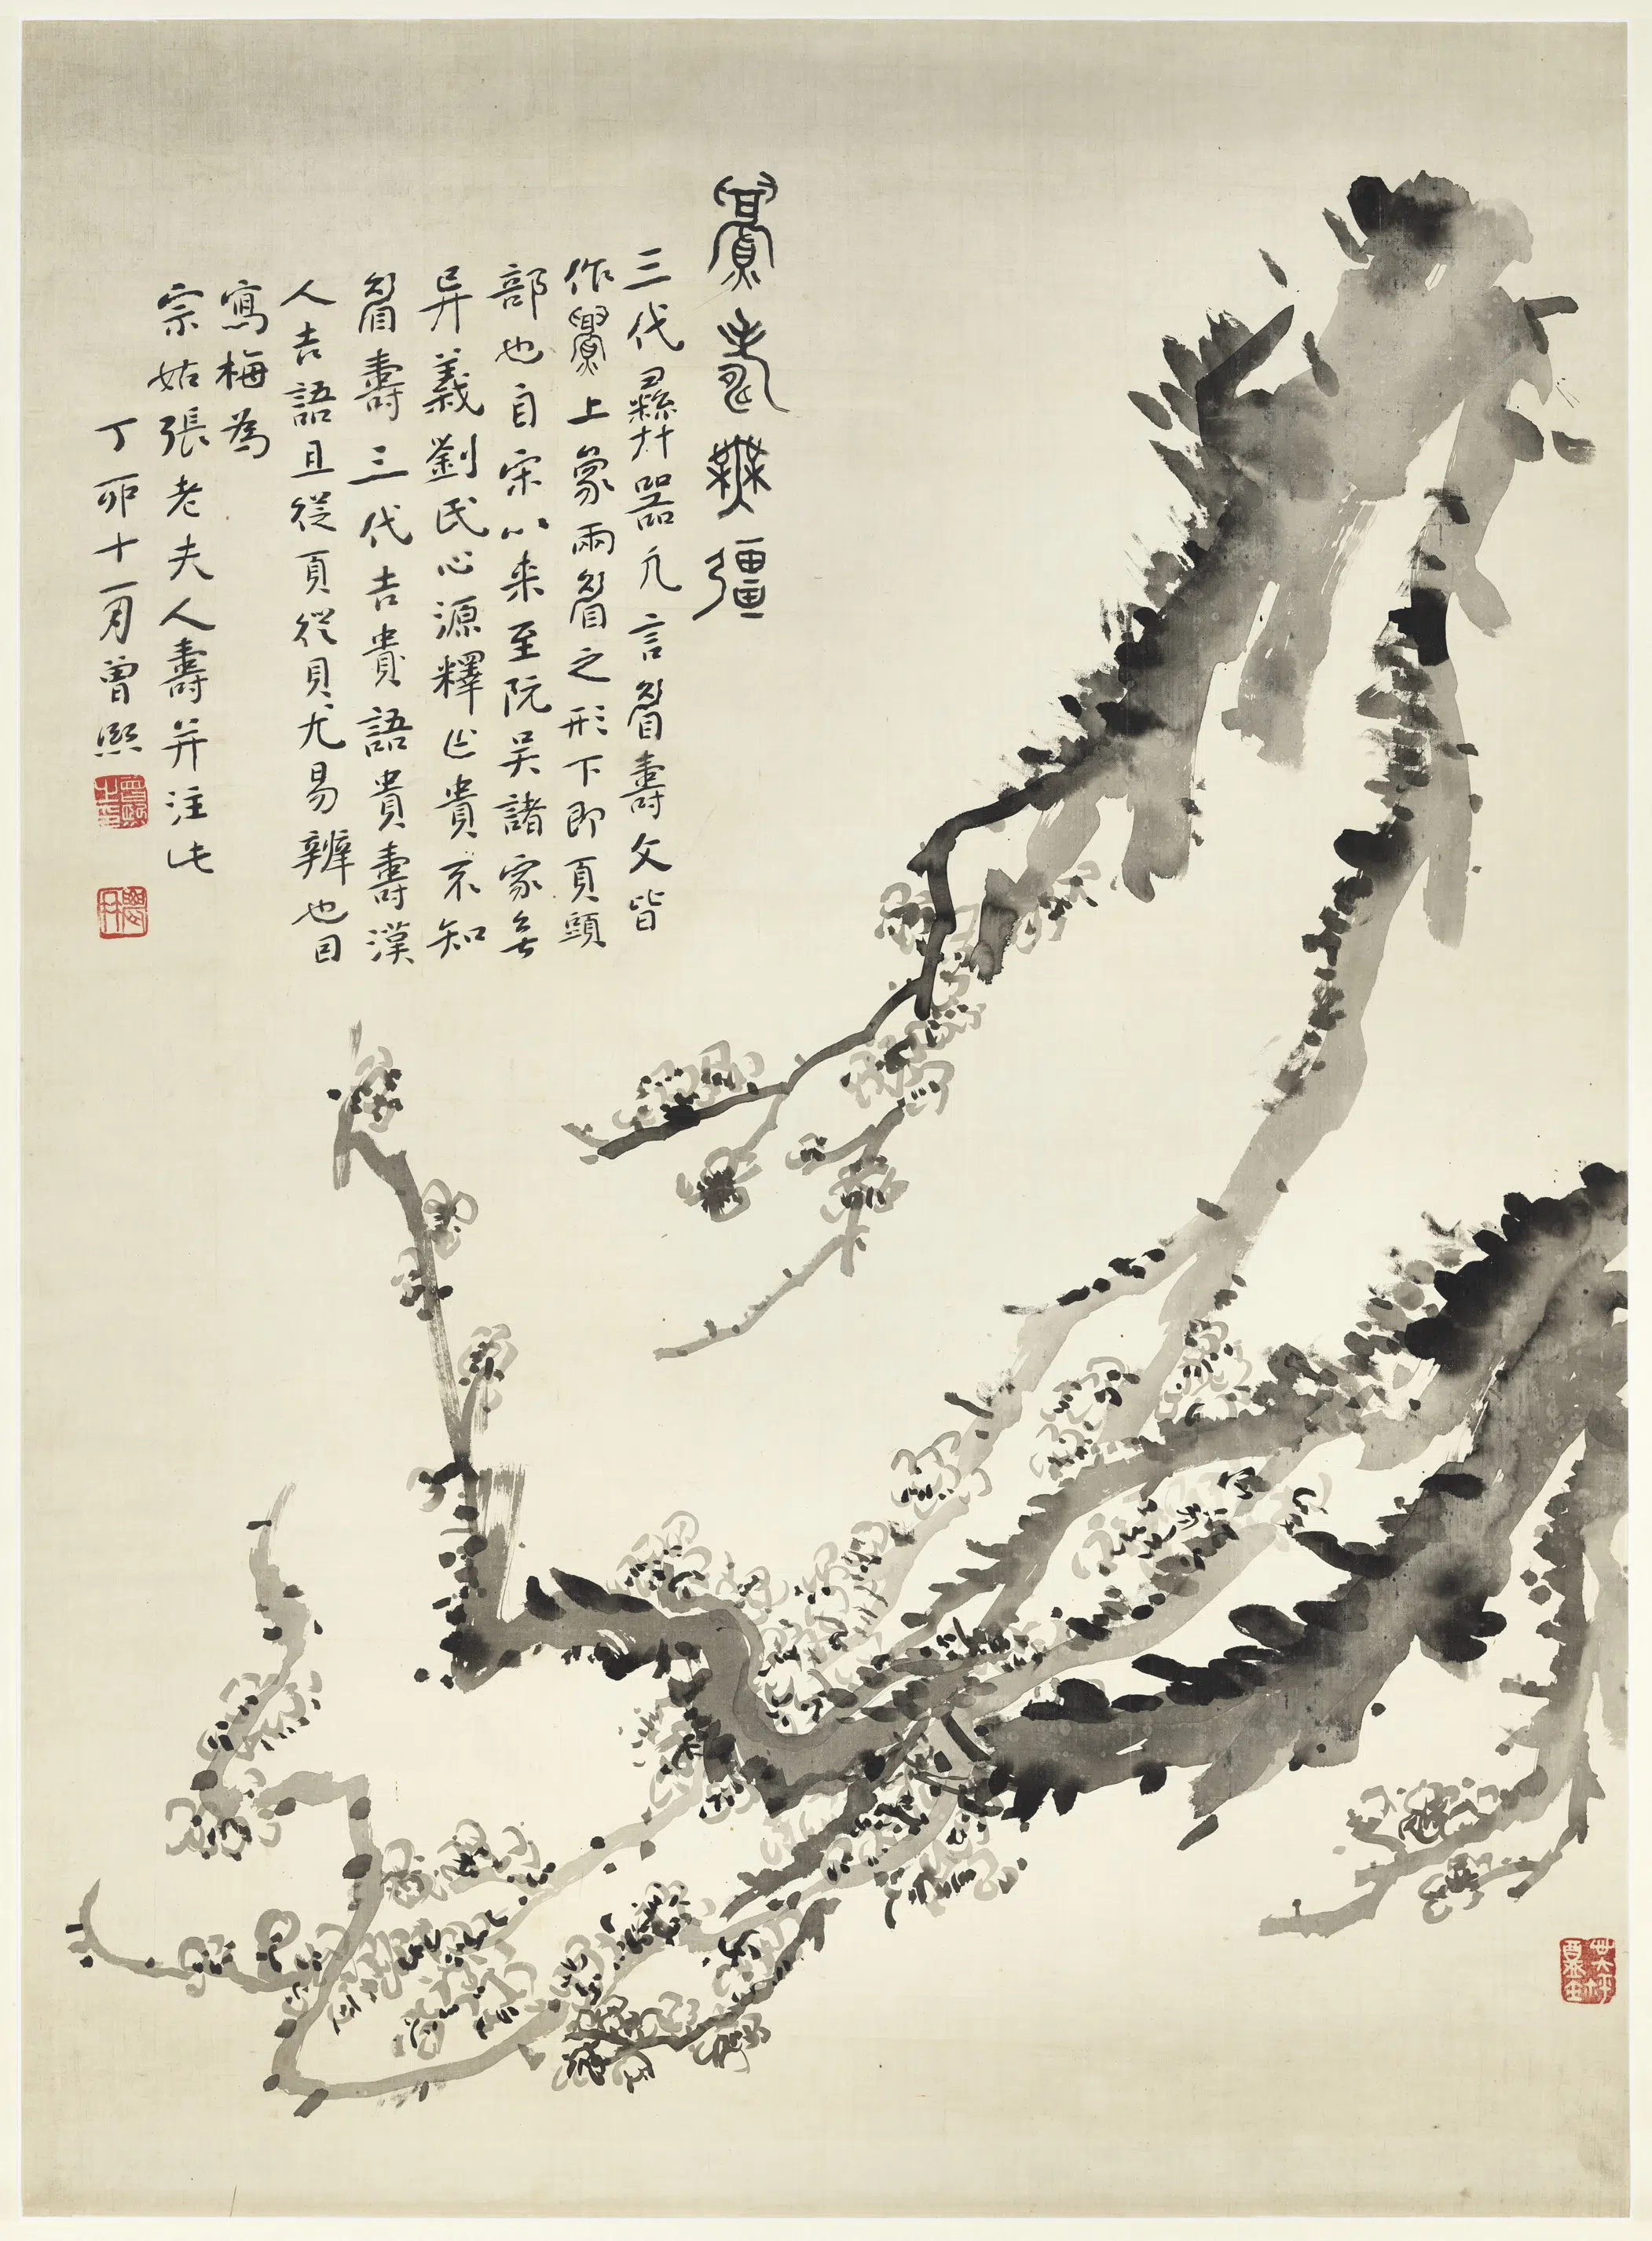 眉壽無疆
三代彝器凡言眉壽文皆
作釁上象兩眉之形下即頁頭
部也自宋以来至阮吴諸家無
异義劉氏心源釋作貴不知
眉壽三代吉貴語貴壽漢
人吉語且從頁從貝尤易辨也因
寫梅為
宗姑張老夫人壽并注此
丁卯十一月曾熙